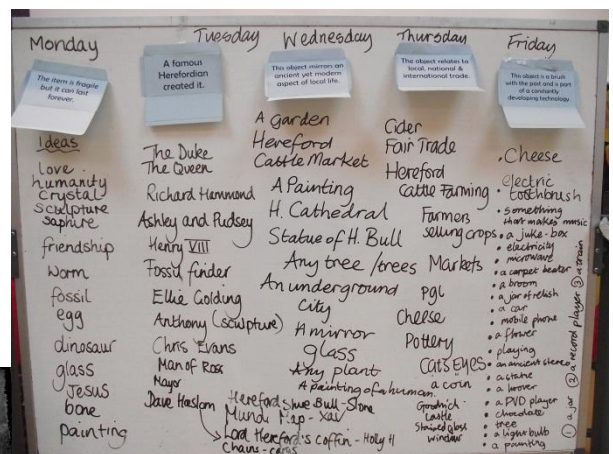 Monday
The item is fragile
but it can last
forever.
Ideas
love
humanity
crystal
sculpture
saphure
friendship
worm
fossil
egg
dinosaur
glass
Jesus
bone
painting
Tuesday
A famous
Herefordian
created it.
The Duke
The Queen
Richard Hammond
Ashley and Pudsey
Henry VIII
Fossil finder
Ellie Golding
Anthony (sculpture)
Chris Evans
Man of Ross
Mayor
Dave Haslam
Hereford Shire Bull - Stone
Mundi Map - Xav
Lord Hereford's coffin - Holy H
Chains -
Wednesday
This object mirrors an
ancient yet modern
aspect of local life.
A garden
Hereford
Cattle Market
A Painting
H. Cathedral
Statue of H. Bull
Any tree / trees
An underground
City
A mirror
glass
Any plant
A painting of a human.
Thursday
The object relates to
local, national &
international trade.
Cider
Fair Trade
Hereford
Cattle Farming
Farmers
selling crops
Markets
PGL
Cheese
Pottery
Cat's Eyes
a coin
Goodrich
castle
Stained glass
window
Friday
This object is a brush
with the past and is part
of a constantly
developing technology.
• Cheese
electric
toothbrush
• Something
that makes music
• a juke-box
• electricity
• microwave
• a carpet beater
• a broom
• a jar of relish
• a car
• mobile phone
• a flower
• playing
• an ancient stereo
• a statue
• a hoover
• a DVD player
• chocolate
• tree
• a light bulb
• a painting
① a jar ② a record player ③ a train